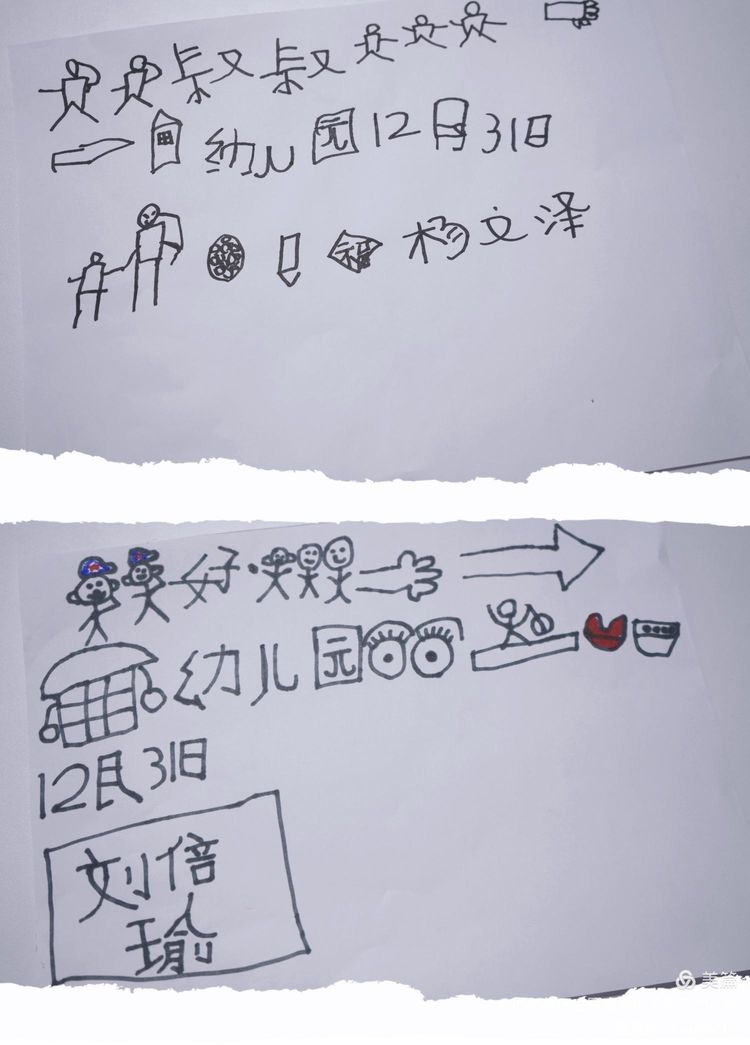 叔叔
幼儿园12月31日
福 杨文泽
好
幼儿园
12月31日
刘倍
瑜
美篇